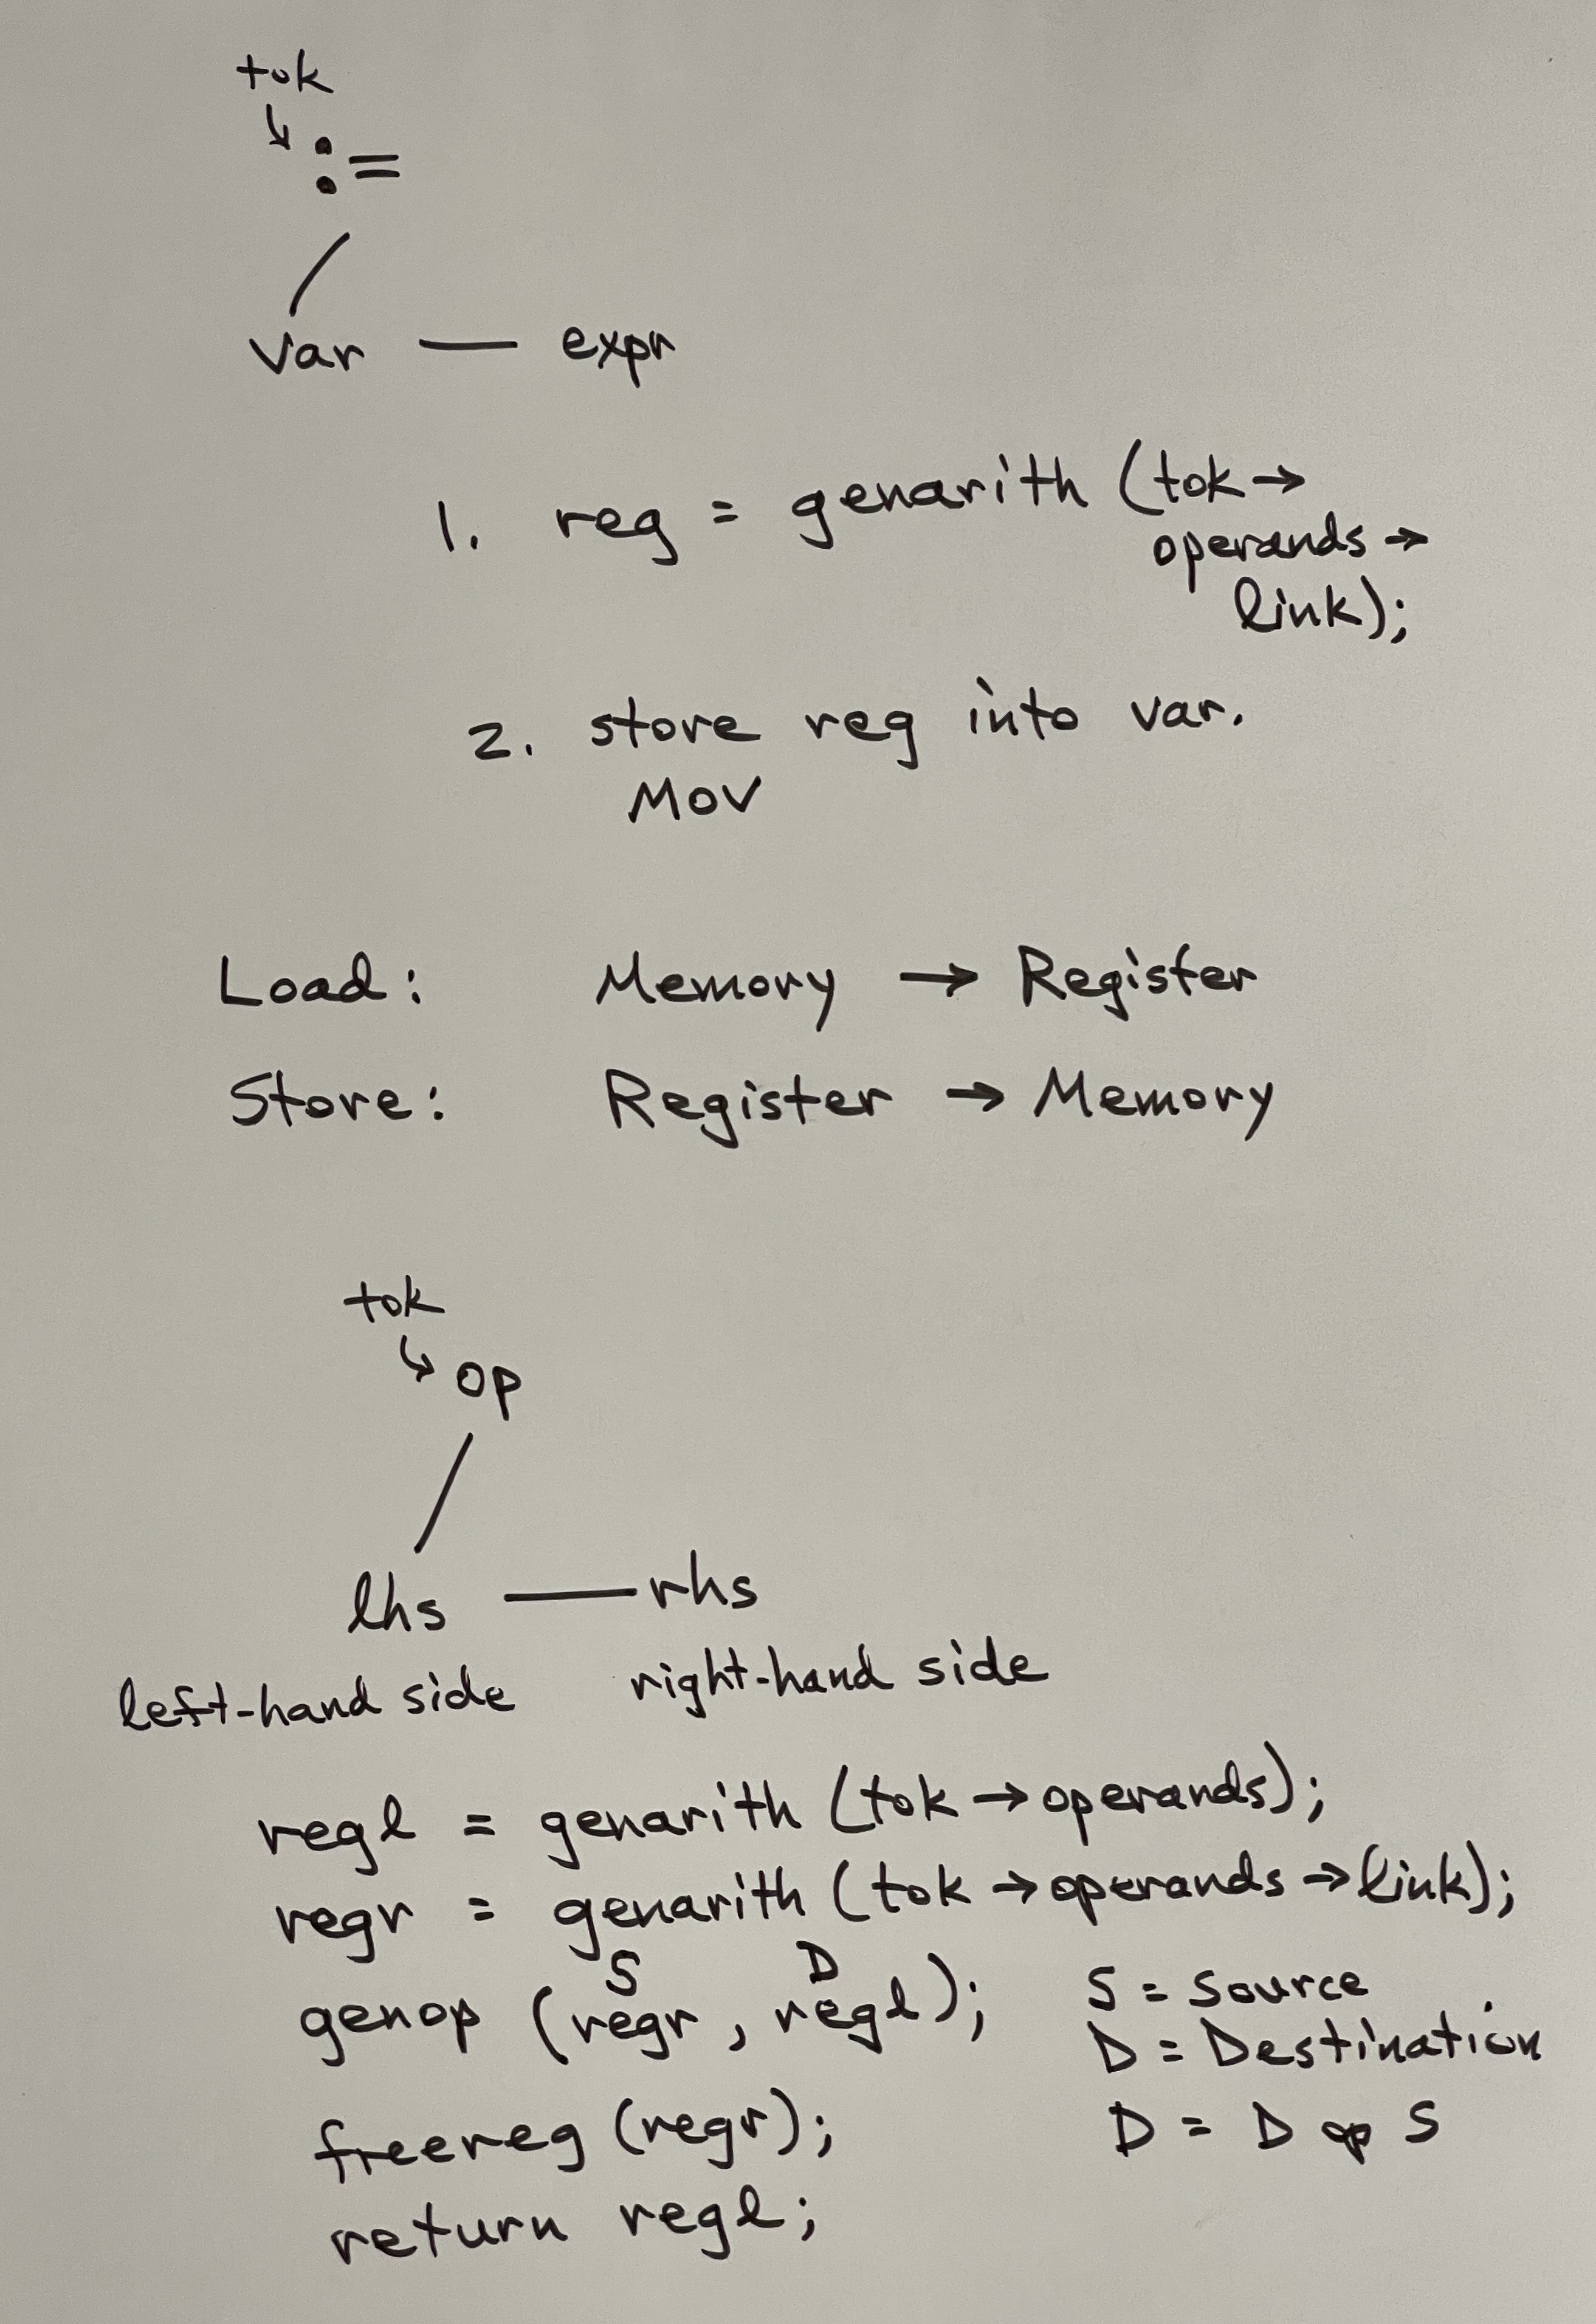 tok
↓ :=
var — expr
1. reg = genarith (tok →
operands →
link);
2. store reg into var.
MOV
Load: Memory → Register
Store: Register → Memory
tok
↓ op
lhs — rhs
left-hand side right-hand side
regl = genarith (tok → operands);
regr = genarith (tok → operands → link);
S D
genop (regr, regl); S = Source
D = Destination
freereg (regr); D = D op S
return regl;